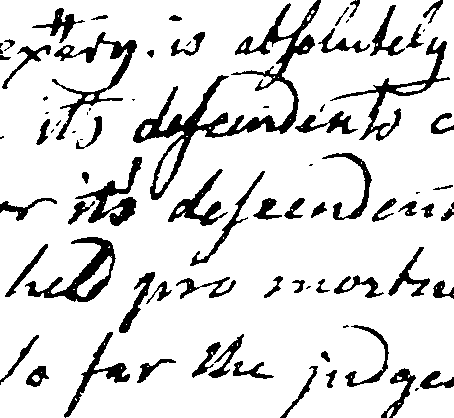 extery. is absolutely
it's descendents
or it's descenden
held pro mortu
so far the judge